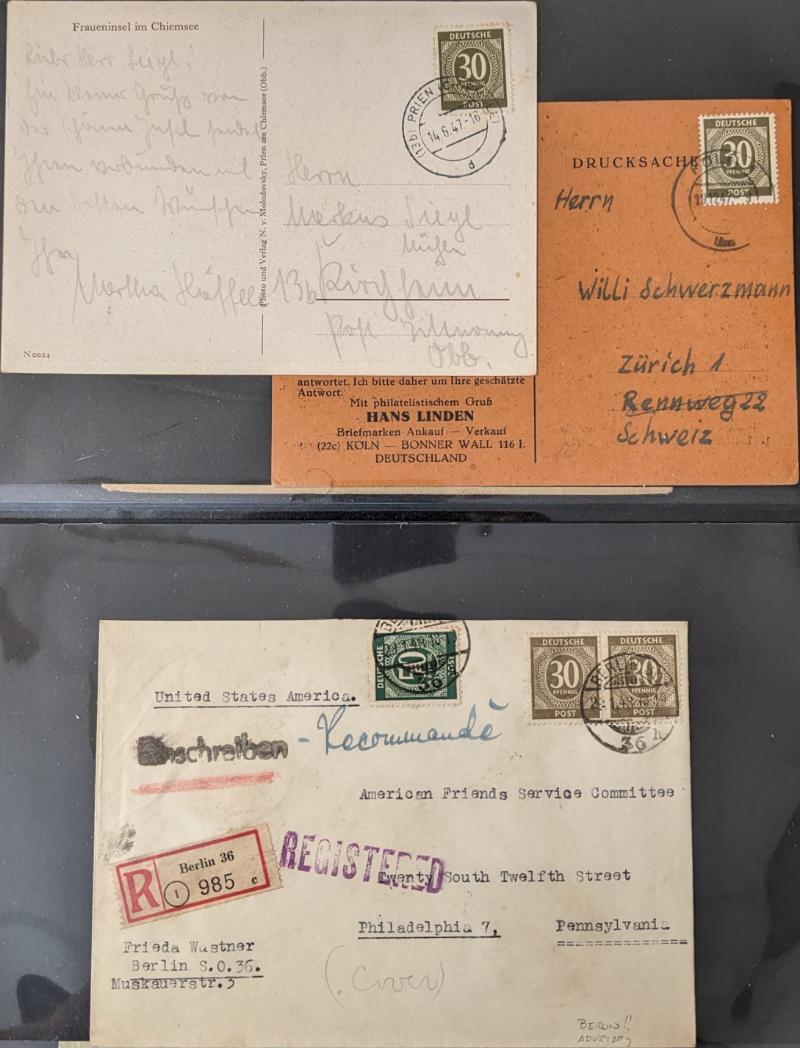 Fraueninsel im Chiemsee
Liebe Herr Siegl!
Ein kleiner Gruß von
der schönen Insel sendet
Ihnen verbunden mit
den besten Wünschen
Ihre
Martha
Photo und Verlag N. v. Molodovsky, Prien am Chiemsee (Obb.)
N 0024
DEUTSCHE
30
PFENNIG
POST
(13b) PRIEN
14.6.47.-16
d
Herrn
Markus Siegl
13b Kirchheim
Post Tittmoning
Obb.
DRUCKSACHE
30
PFENNIG
POST
Herrn
Willi Schwerzmann
Zürich 1
Rennweg 22
Schweiz
antwortet. Ich bitte daher um Ihre geschätzte
Antwort.
Mit philatelistischem Gruß
HANS LINDEN
Briefmarken Ankauf — Verkauf
(22c) KÖLN — BONNER WALL 116 I.
DEUTSCHLAND
DEUTSCHE
50
POST
DEUTSCHE
30
PFENNIG
POST
DEUTSCHE
30
PFENNIG
POST
36 h
United States America.
Einschreiben - Recommandé
American Friends Service Committee
REGISTERED
Twenty South Twelfth Street
Philadelphia 7, Pennsylvania
R
Berlin 36
1
985 c
Frieda Wustner
Berlin S.O.36.
Muskauerstr.5
(Cover)
BERLIN!!